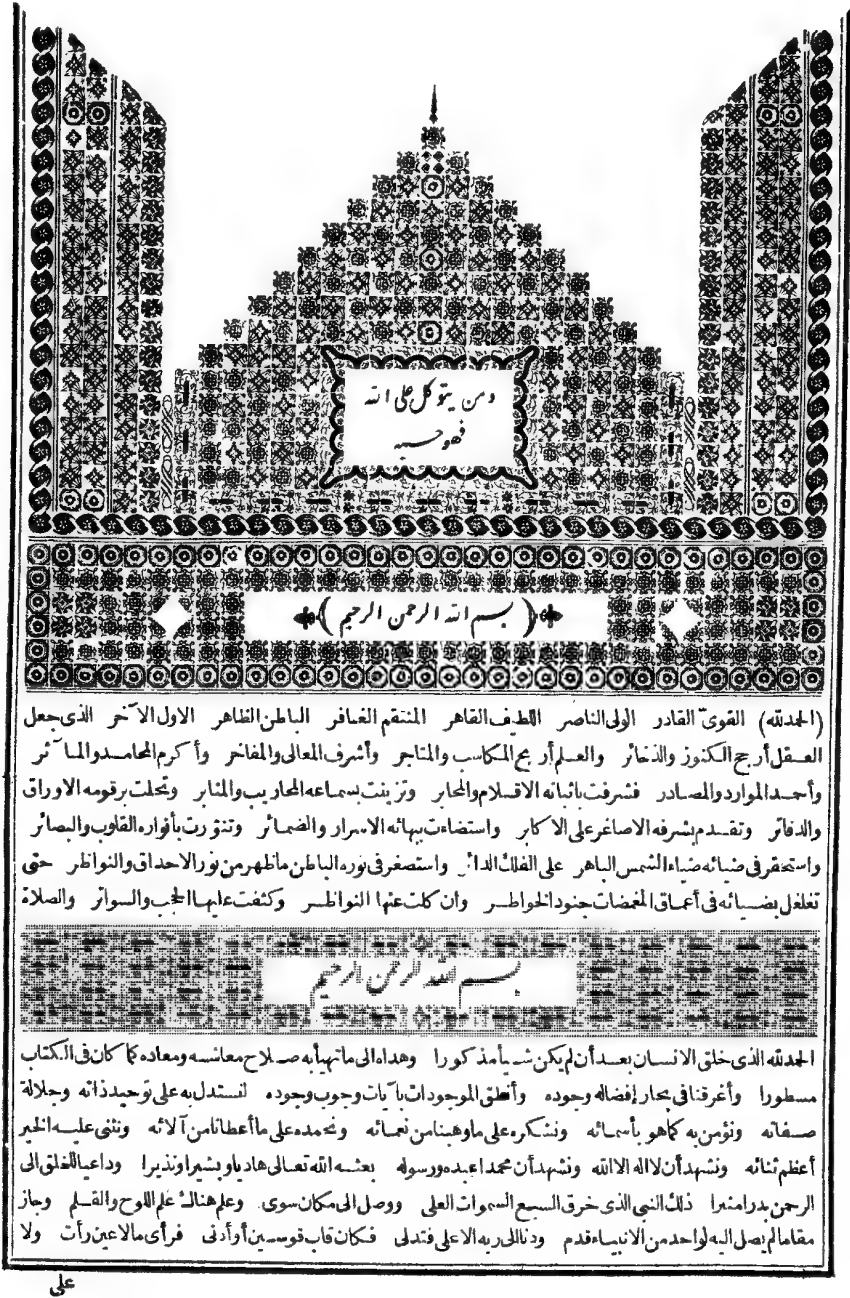 ومن يتوكل على الله
فهو حسبه
(بسم الله الرحمن الرحيم)
(الحمد لله) القوىّ القادر الولى الناصر اللطيف القاهر المنتقم الغافر الباطن الظاهر الاول الآخر الذى جعل
العقل أرجح الكنوز والذخائر والعلم أربح المكاسب والمتاجر وأشرف المعالى والمفاخر وأكرم المحامد والمآثر
وأحمد الموارد والمصادر فشرفت باثباته الاقلام والمحابر وتزينت بسماعه المحاريب والمنابر وتحلت برقومه الاوراق
والدفاتر وتقدم بشرفه الاصاغر على الاكابر واستضاءت ببهائه الاسرار والضمائر وتنورت بأنواره القلوب والبصائر
واستحقر فى ضيائه ضياء الشمس الباهر على الفلك الدائر واستصغر فى نوره الباطن ماظهر من نور الاحداق والنواظر حتى
تغلغل بضيائه فى أعماق المغمضات جنود الخواطر وان كلت عنها النواظر وكثفت عليها الحجب والسواتر والصلاة
بسم الله الرحمن الرحيم
الحمد لله الذى خلق الانسان بعد أن لم يكن شيأ مذكورا وهداه الى ماتهيأ به صلاح معاشه ومعاده كما كان فى الكتاب
مسطورا وأغرقنا فى بحار إفضاله وجوده وأنطق الموجودات بآيات وجوب وجوده لنستدل به على توحيد ذاته وجلالة
صفاته ونؤمن به كما هو بأسمائه ونشكره على ماوهبنا من نعمائه ونحمده على ماأعطانا من آلائه ونثنى عليه الخير
أعظم ثنائه ونشهد أن لااله الاالله ونشهد أن محمدا عبده ورسوله بعثه الله تعالى هاديا وبشيرا ونذيرا وداعيا للخلق الى
الرحمن بدرا منيرا ذلك النبى الذى خرق السبع السموات العلى ووصل الى مكان سوى وعلم هناك علم اللوح والقلم وجاز
مقاما لم يصل اليه لواحد من الانبياء قدم ودنا الى ربه الاعلى فتدلى فكان قاب قوسين أو أدنى فرأى مالاعين رأت ولا
على